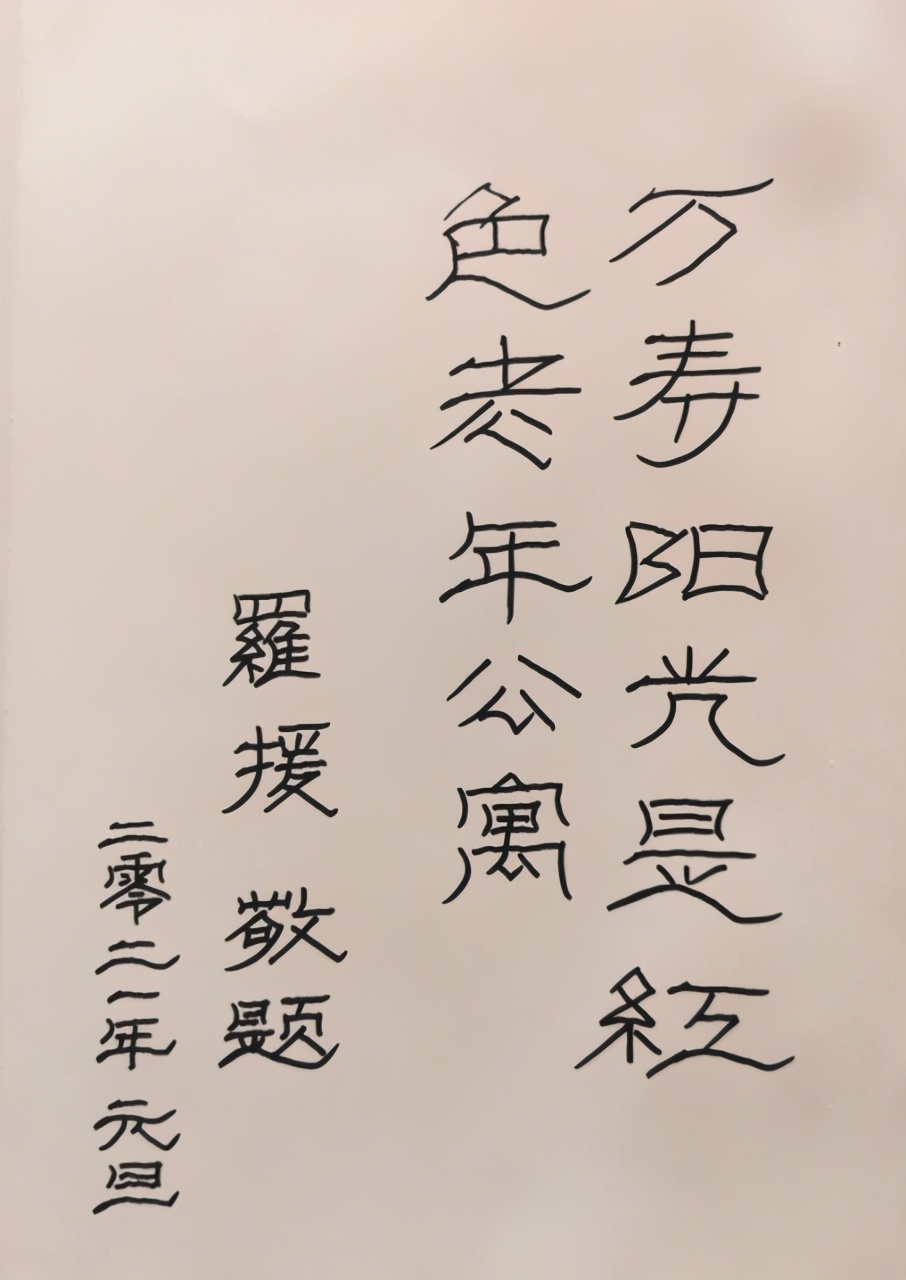 万寿阳光是紅
色老年公寓
羅援敬题
二零二一年元旦